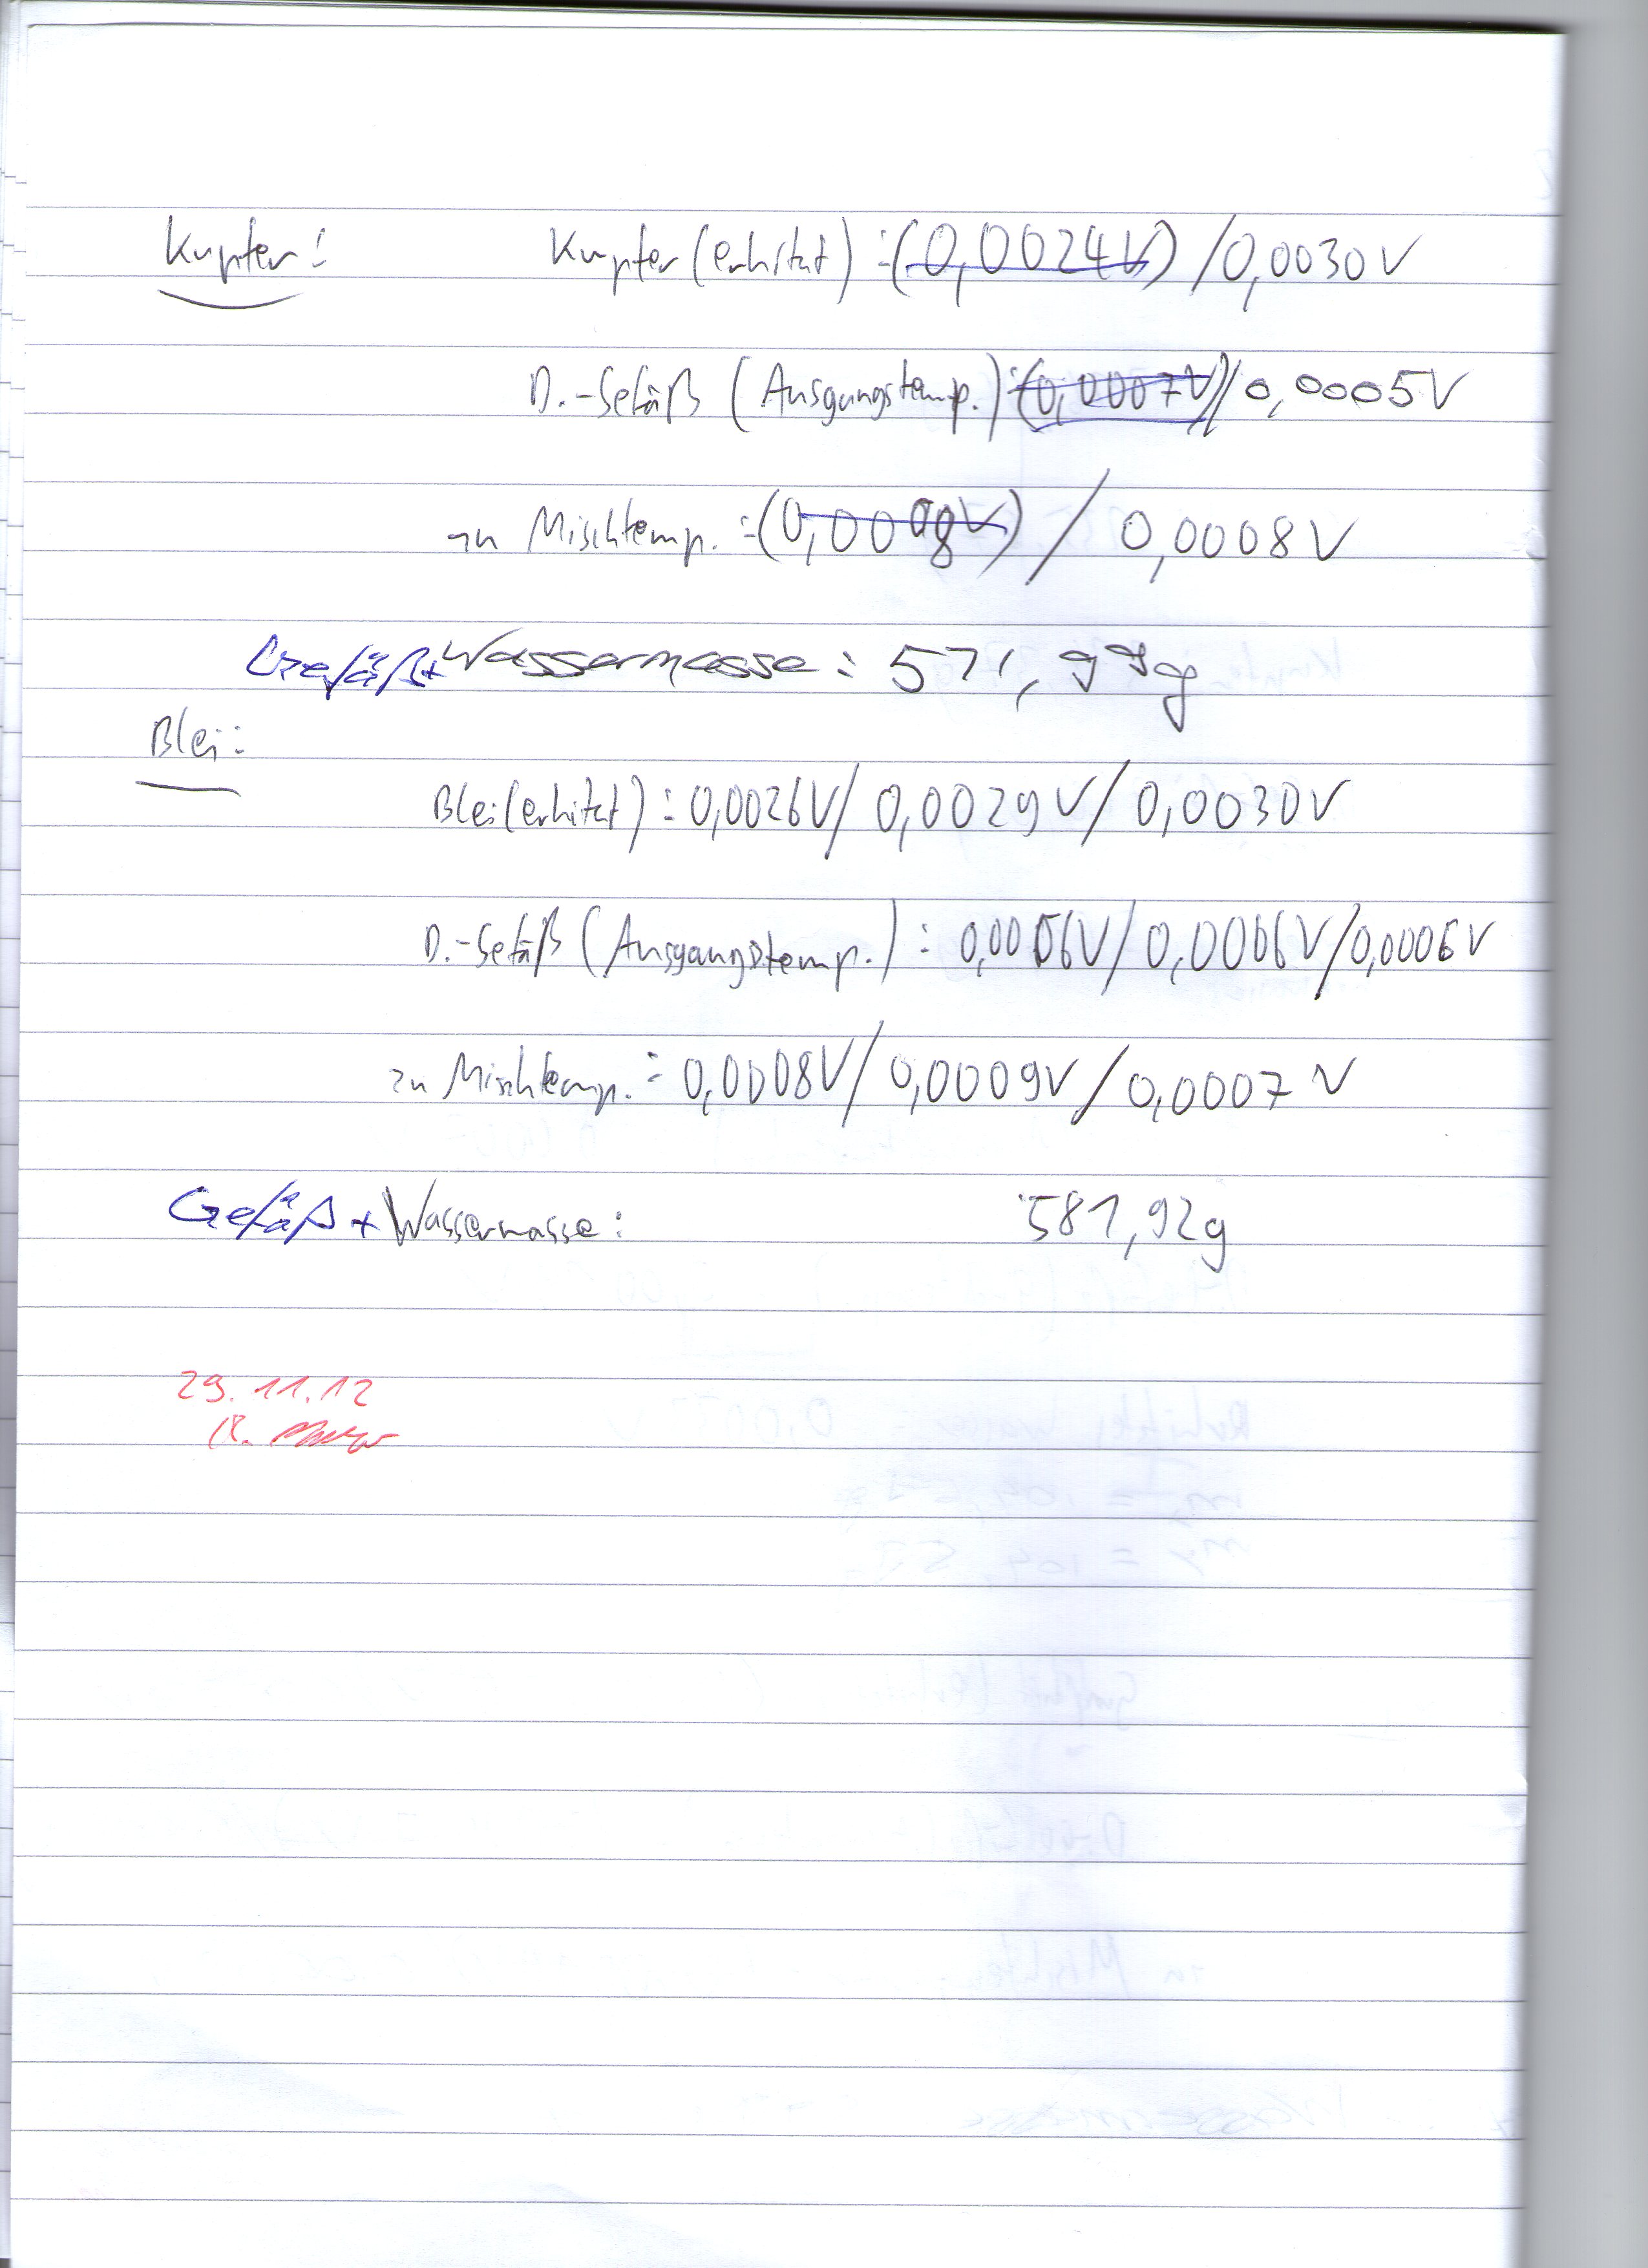 Kupfer:
Kupfer (erhitzt) : (0,0024V) / 0,0030V
D.-Gefäß (Ausgangstemp.) : (0,0007V) / 0,0005V
zu Mischtemp. : (0,0008V) / 0,0008V
Gefäß+Wassermasse : 571,97g
Blei:
Blei (erhitzt) : 0,0026V / 0,0029V / 0,0030V
D.-Gefäß (Ausgangstemp.) : 0,0006V / 0,0006V / 0,0006V
zu Mischtemp. : 0,0008V / 0,0009V / 0,0007V
Gefäß + Wassermasse : 581,92g
29.11.12